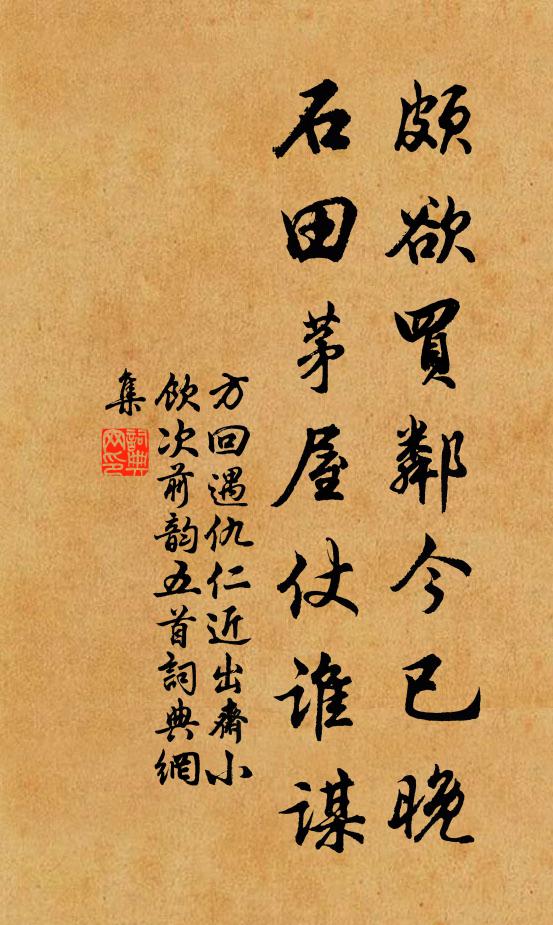 頗欲買鄰今已晚
石田茅屋仗誰謀
方回遇仇仁近出齋小
飲次前韵五首詞典網
集
詞典
网印